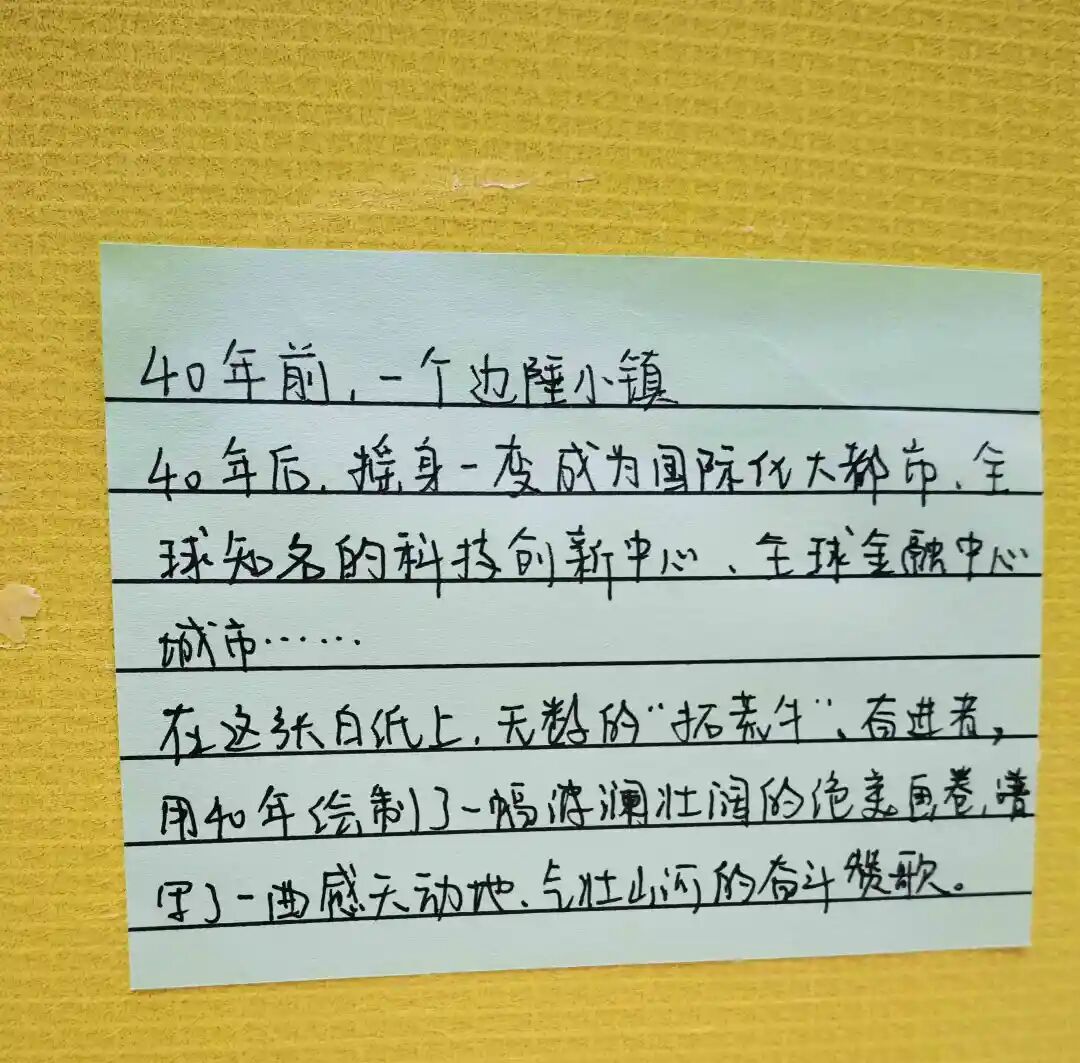 40年前，一个边陲小镇
40年后，摇身一变成为国际化大都市、全
球知名的科技创新中心、全球金融中心
城市……
在这张白纸上，无数的“拓荒牛”、奋进者，
用40年绘制了一幅波澜壮阔的绝美画卷，谱
写了一曲感天动地、气壮山河的奋斗赞歌。